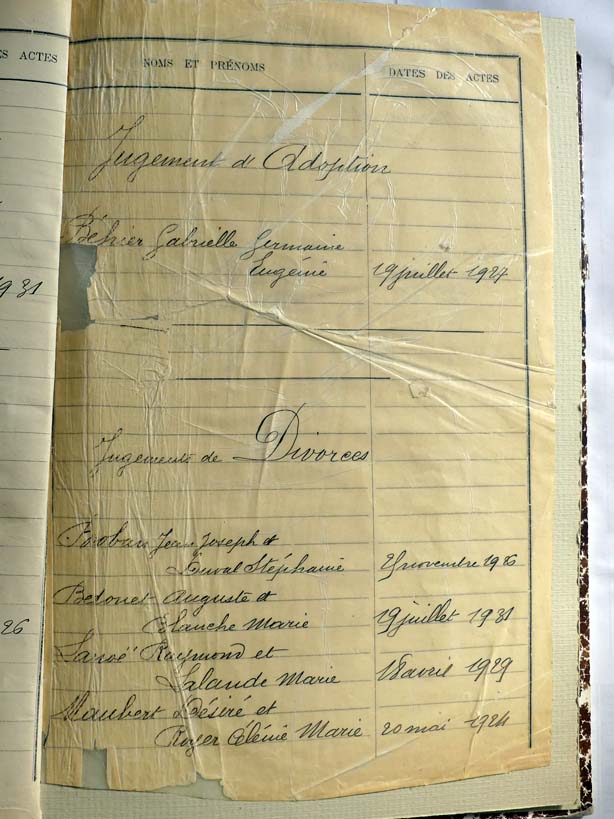 S ACTES
NOMS ET PRÉNOMS
DATES DES ACTES
Jugement d'Adoption
Béhier Gabrielle Germaine
Eugénie 19 juillet 1927
931
Jugements de Divorces
Jean Joseph et
Duval Stéphanie novembre 1926
Betonet Auguste et
Blanche Marie 19 juillet 1931
26
Raymond et
Lalande Marie 18 avril 1929
Maubert Désiré et
Royer Clénie Marie 20 mai 1924